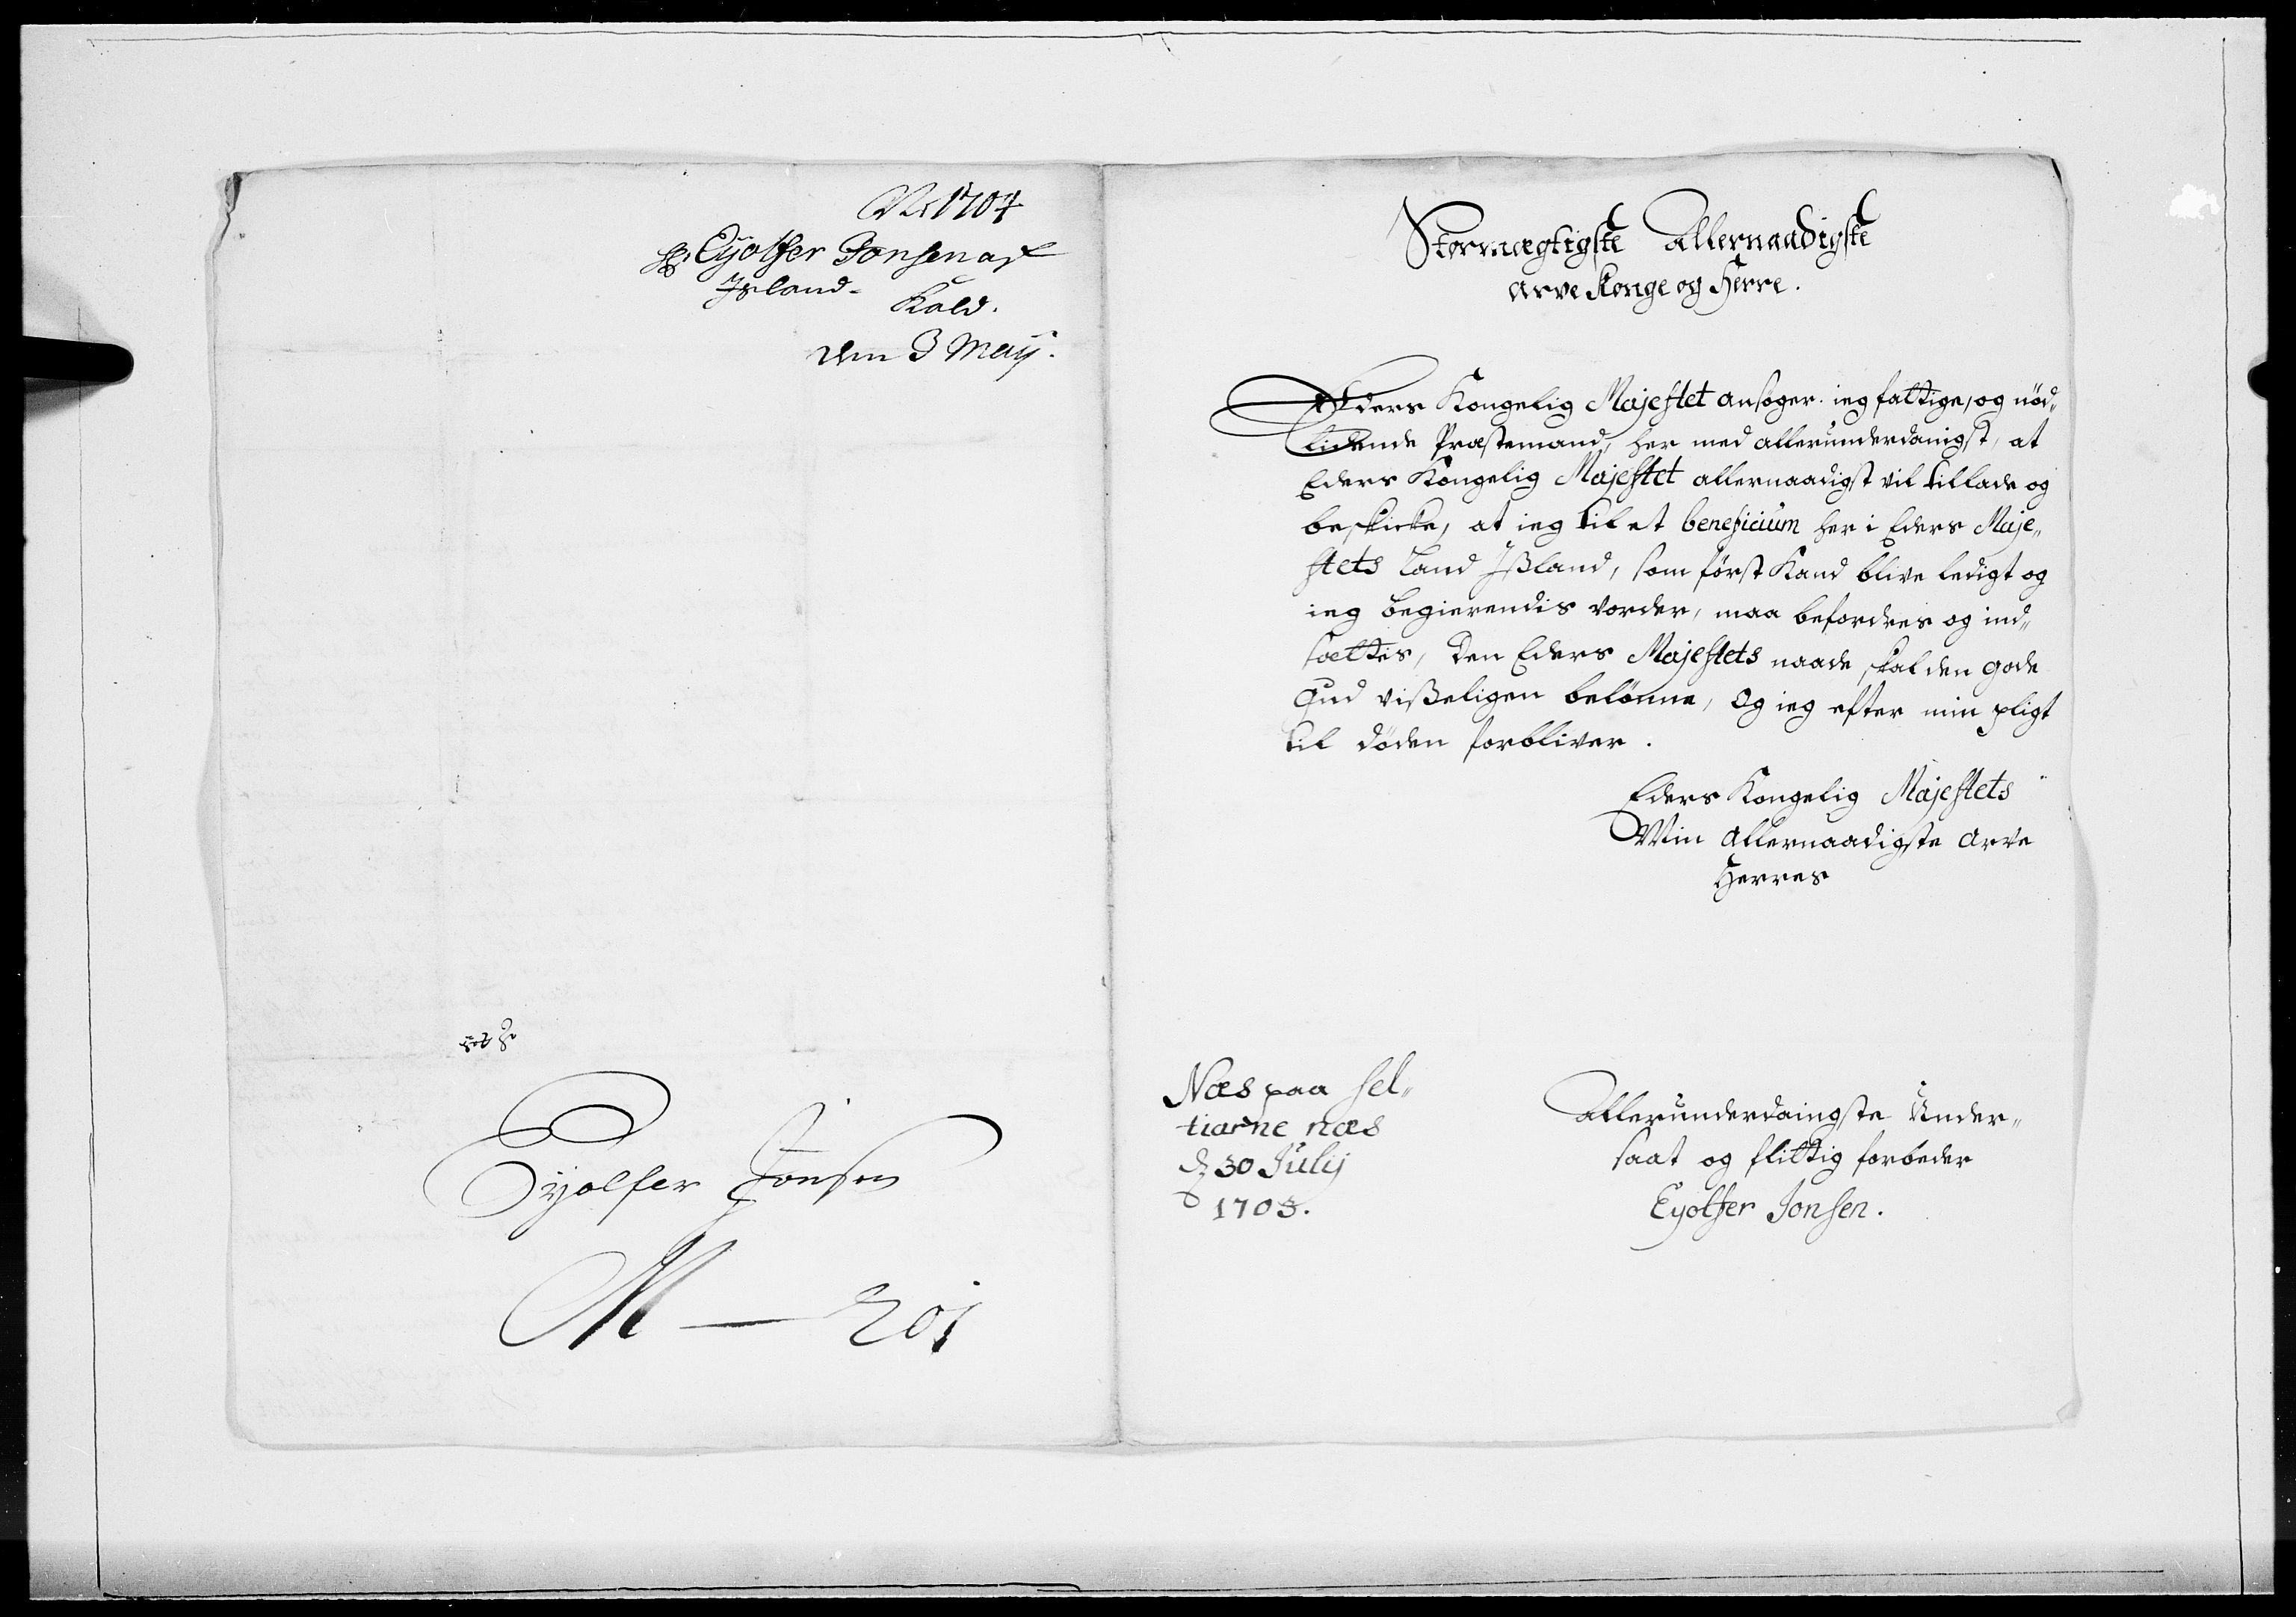 1704
Hr. Eyolfer Jonsen af
Island.
Kald.
den 3 Maij.
Eyolfer Jonsen
M — 201
Stormegtigste Allernaadigste
Arve Konge og Herre.
Eders Kongelig Majestet ansøger ieg fattige, og nød„
lidende Præstemand, her med allerunderdanigst, at
Eders Kongelig Majestet allernaadigst vil tillade og
beskicke, at ieg til et beneficium her i Eders Maje„
stets Land Ißland, som først Kand blive ledigt og
ieg begierendis vorder, maa befordres og ind„
sættes, Den Eders Majestets naade skal den gode
Gud vißeligen belønne, Og ieg efter min pligt
til døden forbliver.
Eders Kongelig Majestets
Min Allernaadigste Arve
Herres
Næs paa Sel„
tiarne næs
d. 30 Julij
1703.
Allerunderdanigste Under„
saat og flittig forbeder
Eyolfer Jonsen.